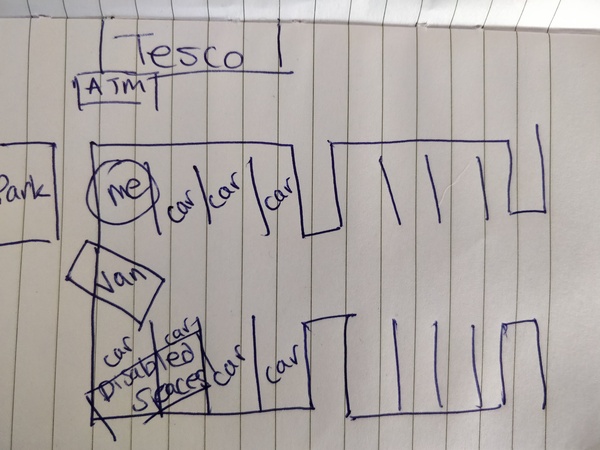 Tesco
ATM
Park
me
car
car
car
Van
car
car
car
car
Disabled
Spaces